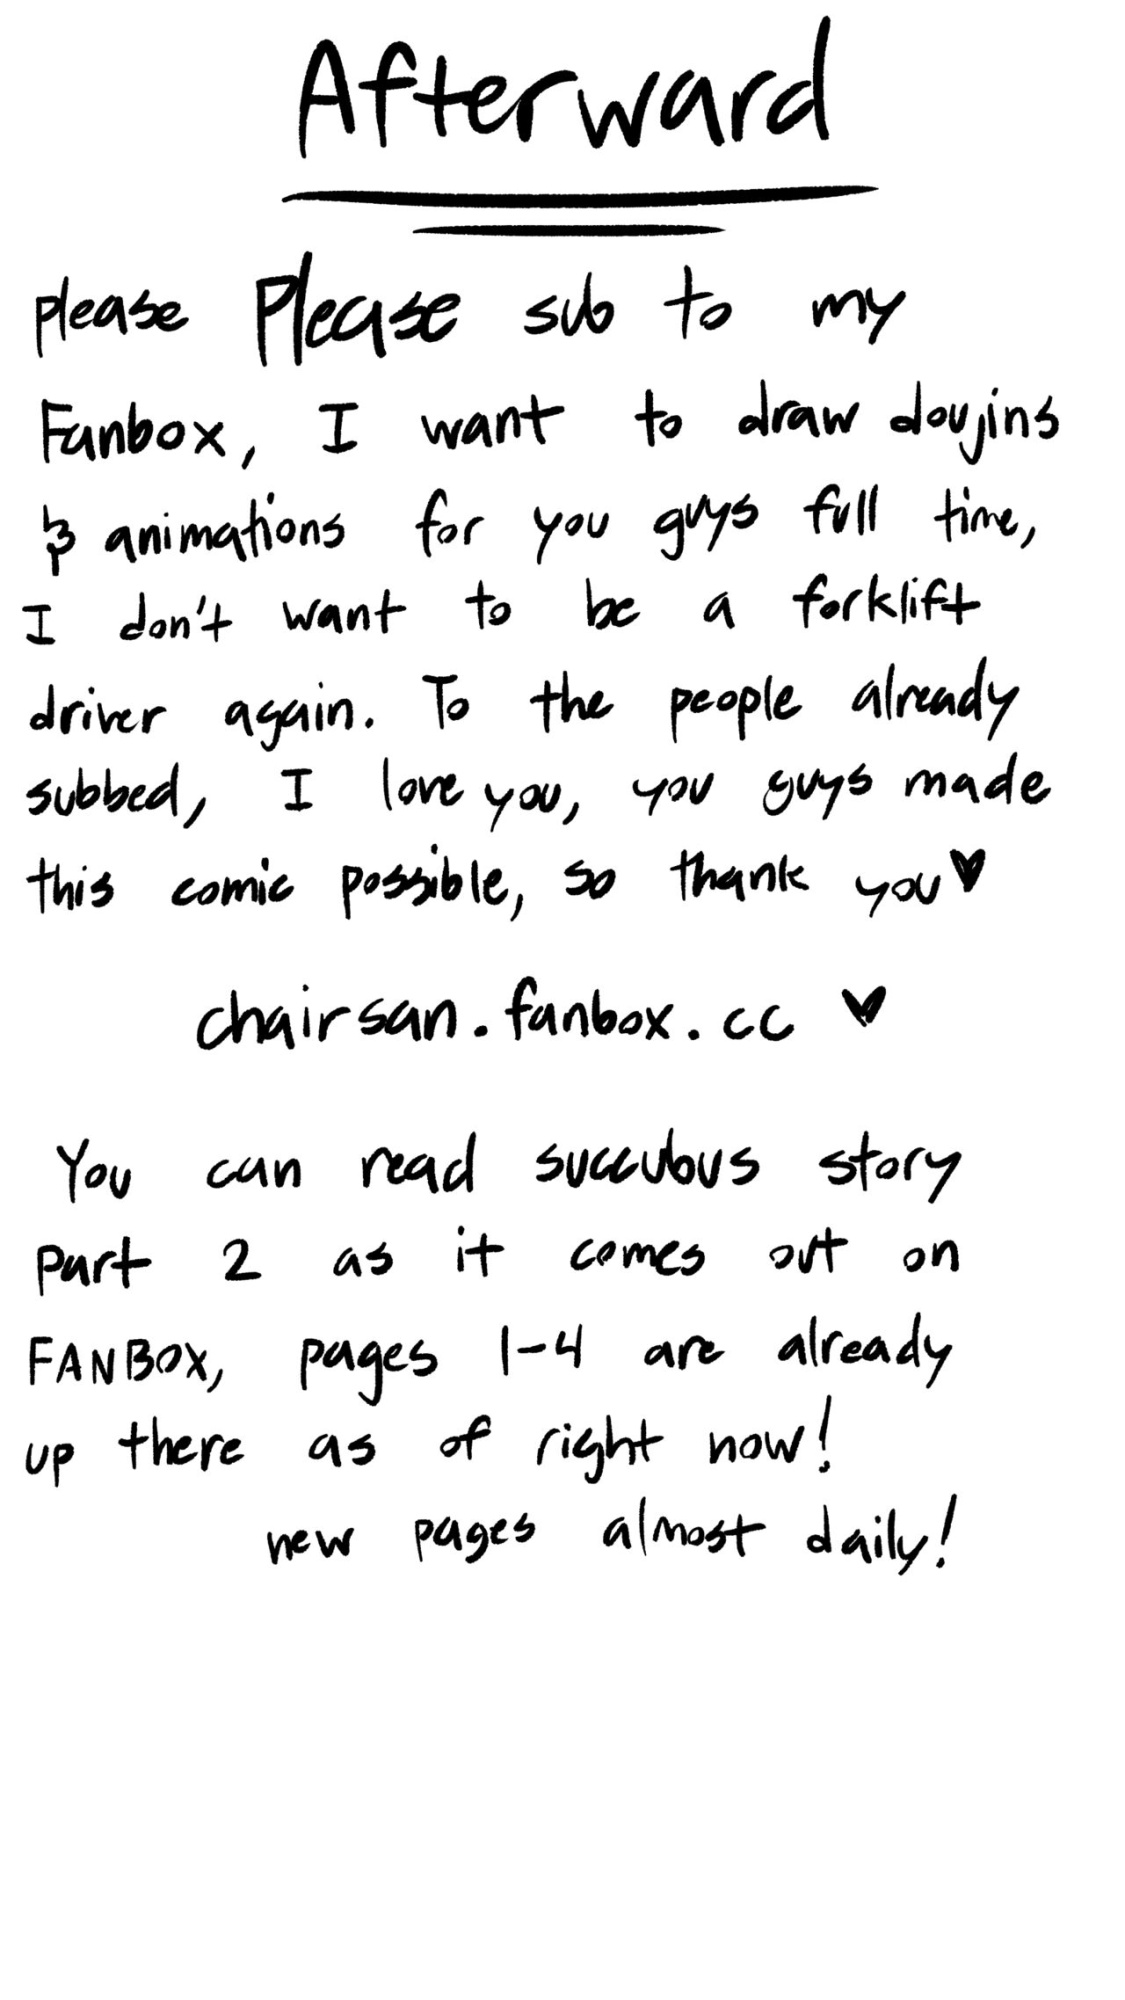 Afterward
please Please sub to my
Fanbox, I want to draw doujins
& animations for you guys full time,
I don't want to be a forklift
driver again. To the people already
subbed, I love you, you guys made
this comic possible, so thank you♥
chairsan.fanbox.cc ♥
You can read succubus story
part 2 as it comes out on
FANBOX, pages 1-4 are already
up there as of right now!
new pages almost daily!